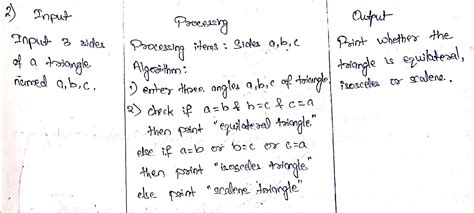 2) Input
Input 3 sides
of a triangle
named a,b,c.
Processing
Processing items : Sides a,b,c
Algorithm :
1) enter three angles a,b,c of triangle
2) check if a=b & b=c & c=a
then print "equilateral triangle"
else if a=b or b=c or c=a
then print "isosceles triangle"
else print "scalene triangle"
Output
Print whether the
triangle is equilateral,
isosceles or scalene.